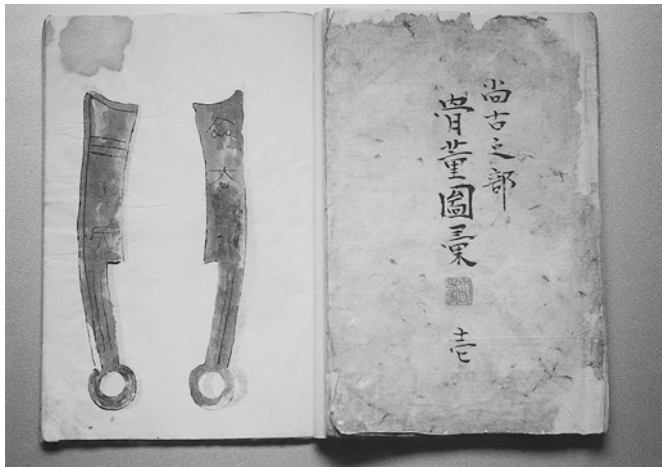 尚古之部
骨董圖彙
壱